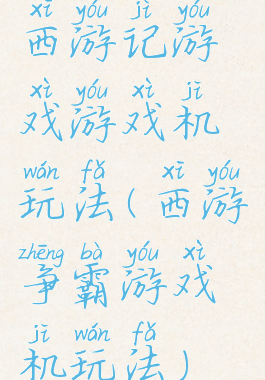 xī yóu jì yóu
西游记游
xì yóu xì jī
戏游戏机
wán fǎ xī yóu
玩法(西游
zhēng bà yóu xì
争霸游戏
jī wán fǎ
机玩法)